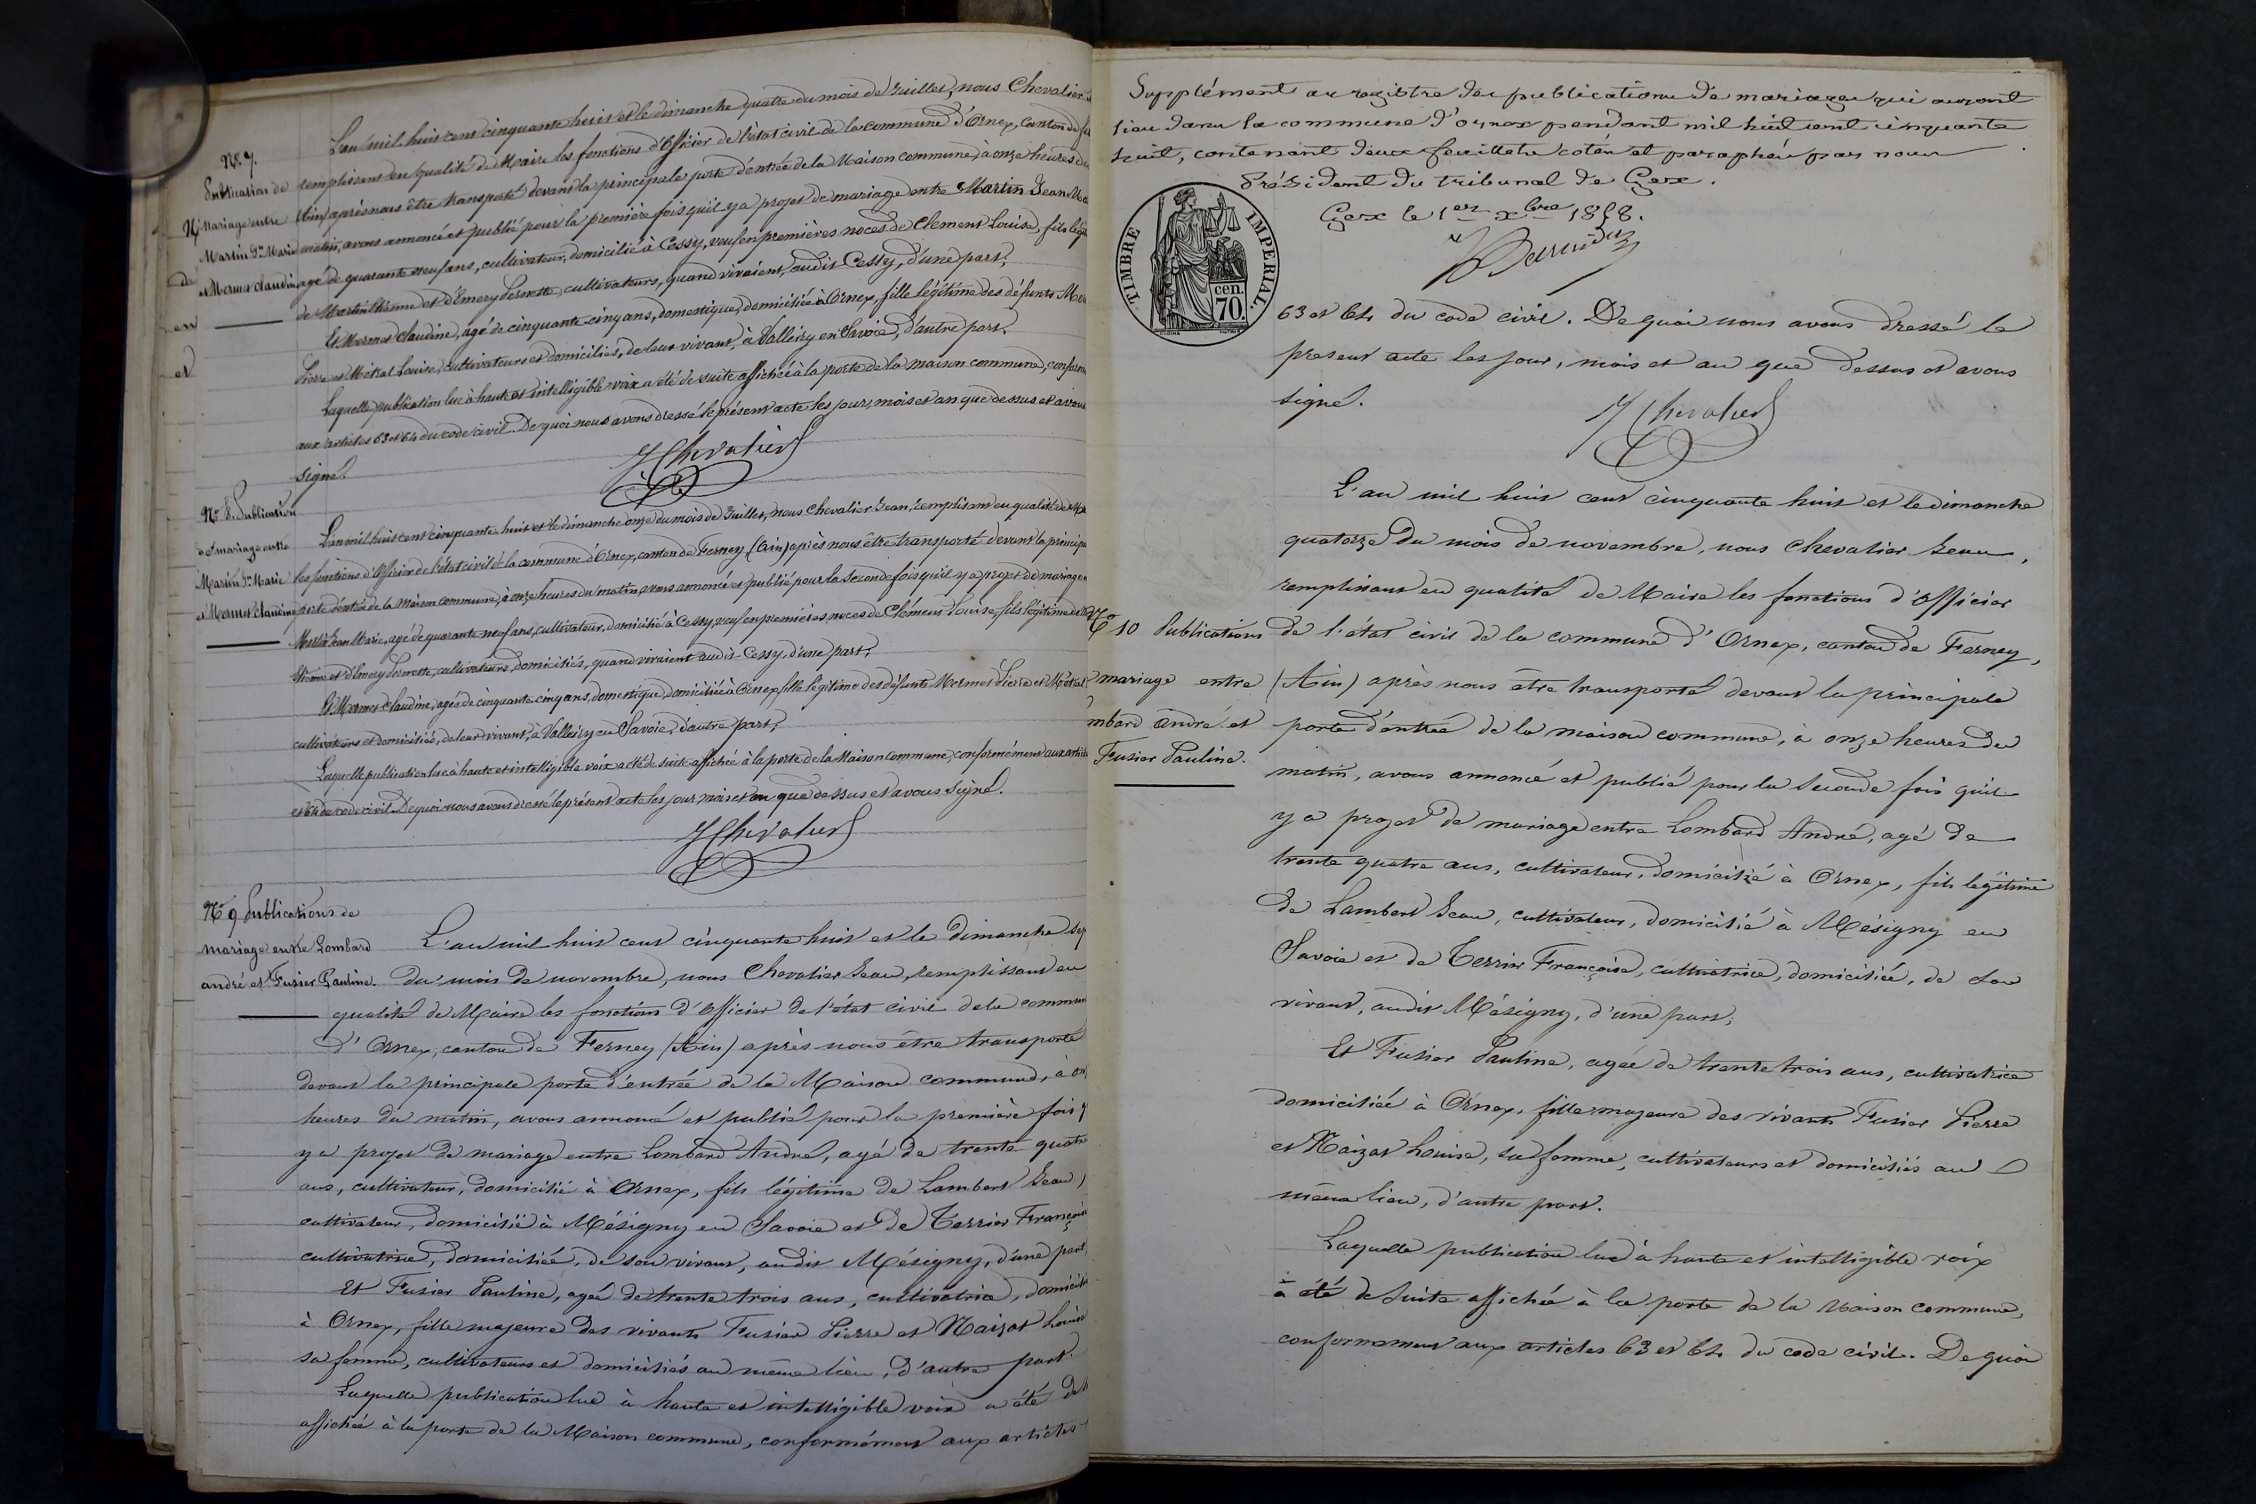 L'an mil huit cent cinquante huit et le dimanche quatre du mois de Juillet, nous Chevalier
N° 7.
Publication de
Mariage entre
Martin Jn Marie
et Mermet Claudine
remplissant en qualité de Maire les fonctions d'Officier de l'état civil de la commune d'Ornex, canton de
(Ain) après nous être transporté devant la principale porte d'entrée de la Maison commune, à onze heures du
matin, avons annoncé et publié pour la première fois qu'il y a projet de mariage entre Martin Jean
agé de quarante neuf ans, cultivateur, domicilié à Cessy, veuf en premières noces de Clement Louise, fils
de Martin Etienne et d'Emery Pernette, cultivateurs, quand vivaient, audit Cessy, d'une part,
Et Mermet Claudine, agé de cinquante cinq ans, domestique, domiciliée à Ornex, fille légitime des défunts
Pierre et Métral Louise, cultivateurs et domiciliés, de leur vivant, à Valleiry en Savoie, d'autre part.
Laquelle publication lue à haute et intelligible voix a été de suite affichée à la porte de la maison commune,
aux articles 63 et 64 du code civil. De quoi nous avons dressé le présent acte les jour, mois et an que dessus et avons
signé.
J Chevalier
N° 8. Publication
de mariage entre
Martin Jn Marie
et Mermet Claudine
L'an mil huit cent cinquante huit et le dimanche onze du mois de Juillet, nous Chevalier Jean, remplissant en qualité de
les fonctions d'Officier de l'état civil de la commune d'Ornex, canton de Ferney (Ain) après nous être transporté devant la
porte d'entrée de la Maison commune, à onze heures du matin, avons annoncé et publié pour la seconde fois qu'il y a projet de mariage
Martin Jean Marie, agé de quarante neuf ans, cultivateur, domicilié à Cessy, veuf en premières noces de Clément Louise, fils légitime de
Etienne et d'Emery Pernette, cultivateurs, domiciliés, quand vivaient audit Cessy, d'une part,
Et Mermet Claudine, agée de cinquante cinq ans, domestique, domiciliée à Ornex, fille légitime des défunts Mermet Pierre et Métral
cultivateurs et domiciliés, de leur vivant, à Valleiry en Savoie, d'autre part,
Laquelle publication lue à haute et intelligible voix a été de suite affichée à la porte de la Maison commune, conformément aux
et 64 du code civil. De quoi nous avons dressé le présent acte les jour mois et an que dessus et avons signé.
J Chevalier
N° 9 Publications de
mariage entre Lombard
andré et Fusier Pauline.
L'an mil huit cent cinquante huit et le dimanche
du mois de novembre, nous Chevalier Jean, remplissant en
qualité de Maire les fonctions d'officier de l'état civil de la
d'Ornex, canton de Ferney (Ain) après nous être transporté
devant la principale porte d'entrée de la Maison commune, à
heures du matin, avons annoncé et publié pour la première fois
y a projet de mariage entre Lombard André, agé de trente quatre
ans, cultivateur, domicilié à Ornex, fils légitime de Lambert Jean,
cultivateur, domicilié à Mésigny en Savoie et de Terrier
cultivatrice, domiciliée, de son vivant, audit Mésigny, d'une part,
Et Fusier Pauline, agée de trente trois ans, cultivatrice,
à Ornex, fille majeure des vivants Fusier Pierre et Naizot
sa femme, cultivateurs et domiciliés au même lieu, d'autre part.
Laquelle publication lue à haute et intelligible voix a été de
affichée à la porte de la Maison commune, conformément aux articles
Supplément au registre des publications de mariages qui auront
lieu dans la commune d'ornex pendant mil huit cent cinquante
huit, contenant deux feuillets cotés et paraphés par nous
Président du tribunal de Gex.
Gex le 1er xbre 1858.
TIMBRE IMPERIAL.
cen.
70.
63 et 64 du code civil. De quoi nous avons dressé le
présent acte les jour, mois et an que dessus et avons
signé.
J Chevalier
L'an mil huit cent cinquante huit et le dimanche
quatorze du mois de novembre, nous Chevalier Jean,
remplissant en qualité de Maire les fonctions d'officier
N° 10 Publications
mariage entre
mbard André et
Fusier Pauline.
de l'état civil de la commune d'Ornex, canton de Ferney,
(Ain) après nous être transporté devant la principale
porte d'entrée de la maison commune, à onze heures du
matin, avons annoncé et publié pour la seconde fois qu'il
y a projet de mariage entre Lombard André, agé de
trente quatre ans, cultivateur, domicilié à Ornex, fils légitime
de Lambert Jean, cultivateur, domicilié à Mésigny en
Savoie et de Terrier Françoise, cultivatrice, domiciliée, de son
vivant, audit Mésigny, d'une part;
Et Fusier Pauline, agée de trente trois ans, cultivatrice
domiciliée à Ornex, fille majeure des vivants Fusier Pierre
et Naizot Louise, sa femme, cultivateurs et domiciliés au
même lieu, d'autre part.
Laquelle publication lue à haute et intelligible voix
a été de suite affichée à la porte de la Maison commune,
conformément aux articles 63 et 64 du code civil. De quoi